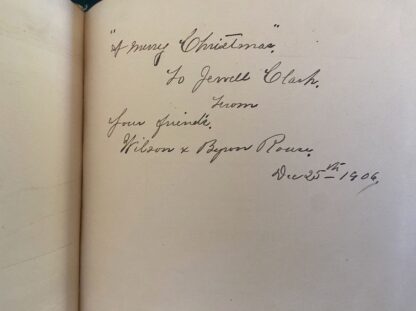 "A Merry Christmas".
To Jewell Clark.
From
Your friends.
Wilson & Byron Rouse.
Dec 25th 1906,